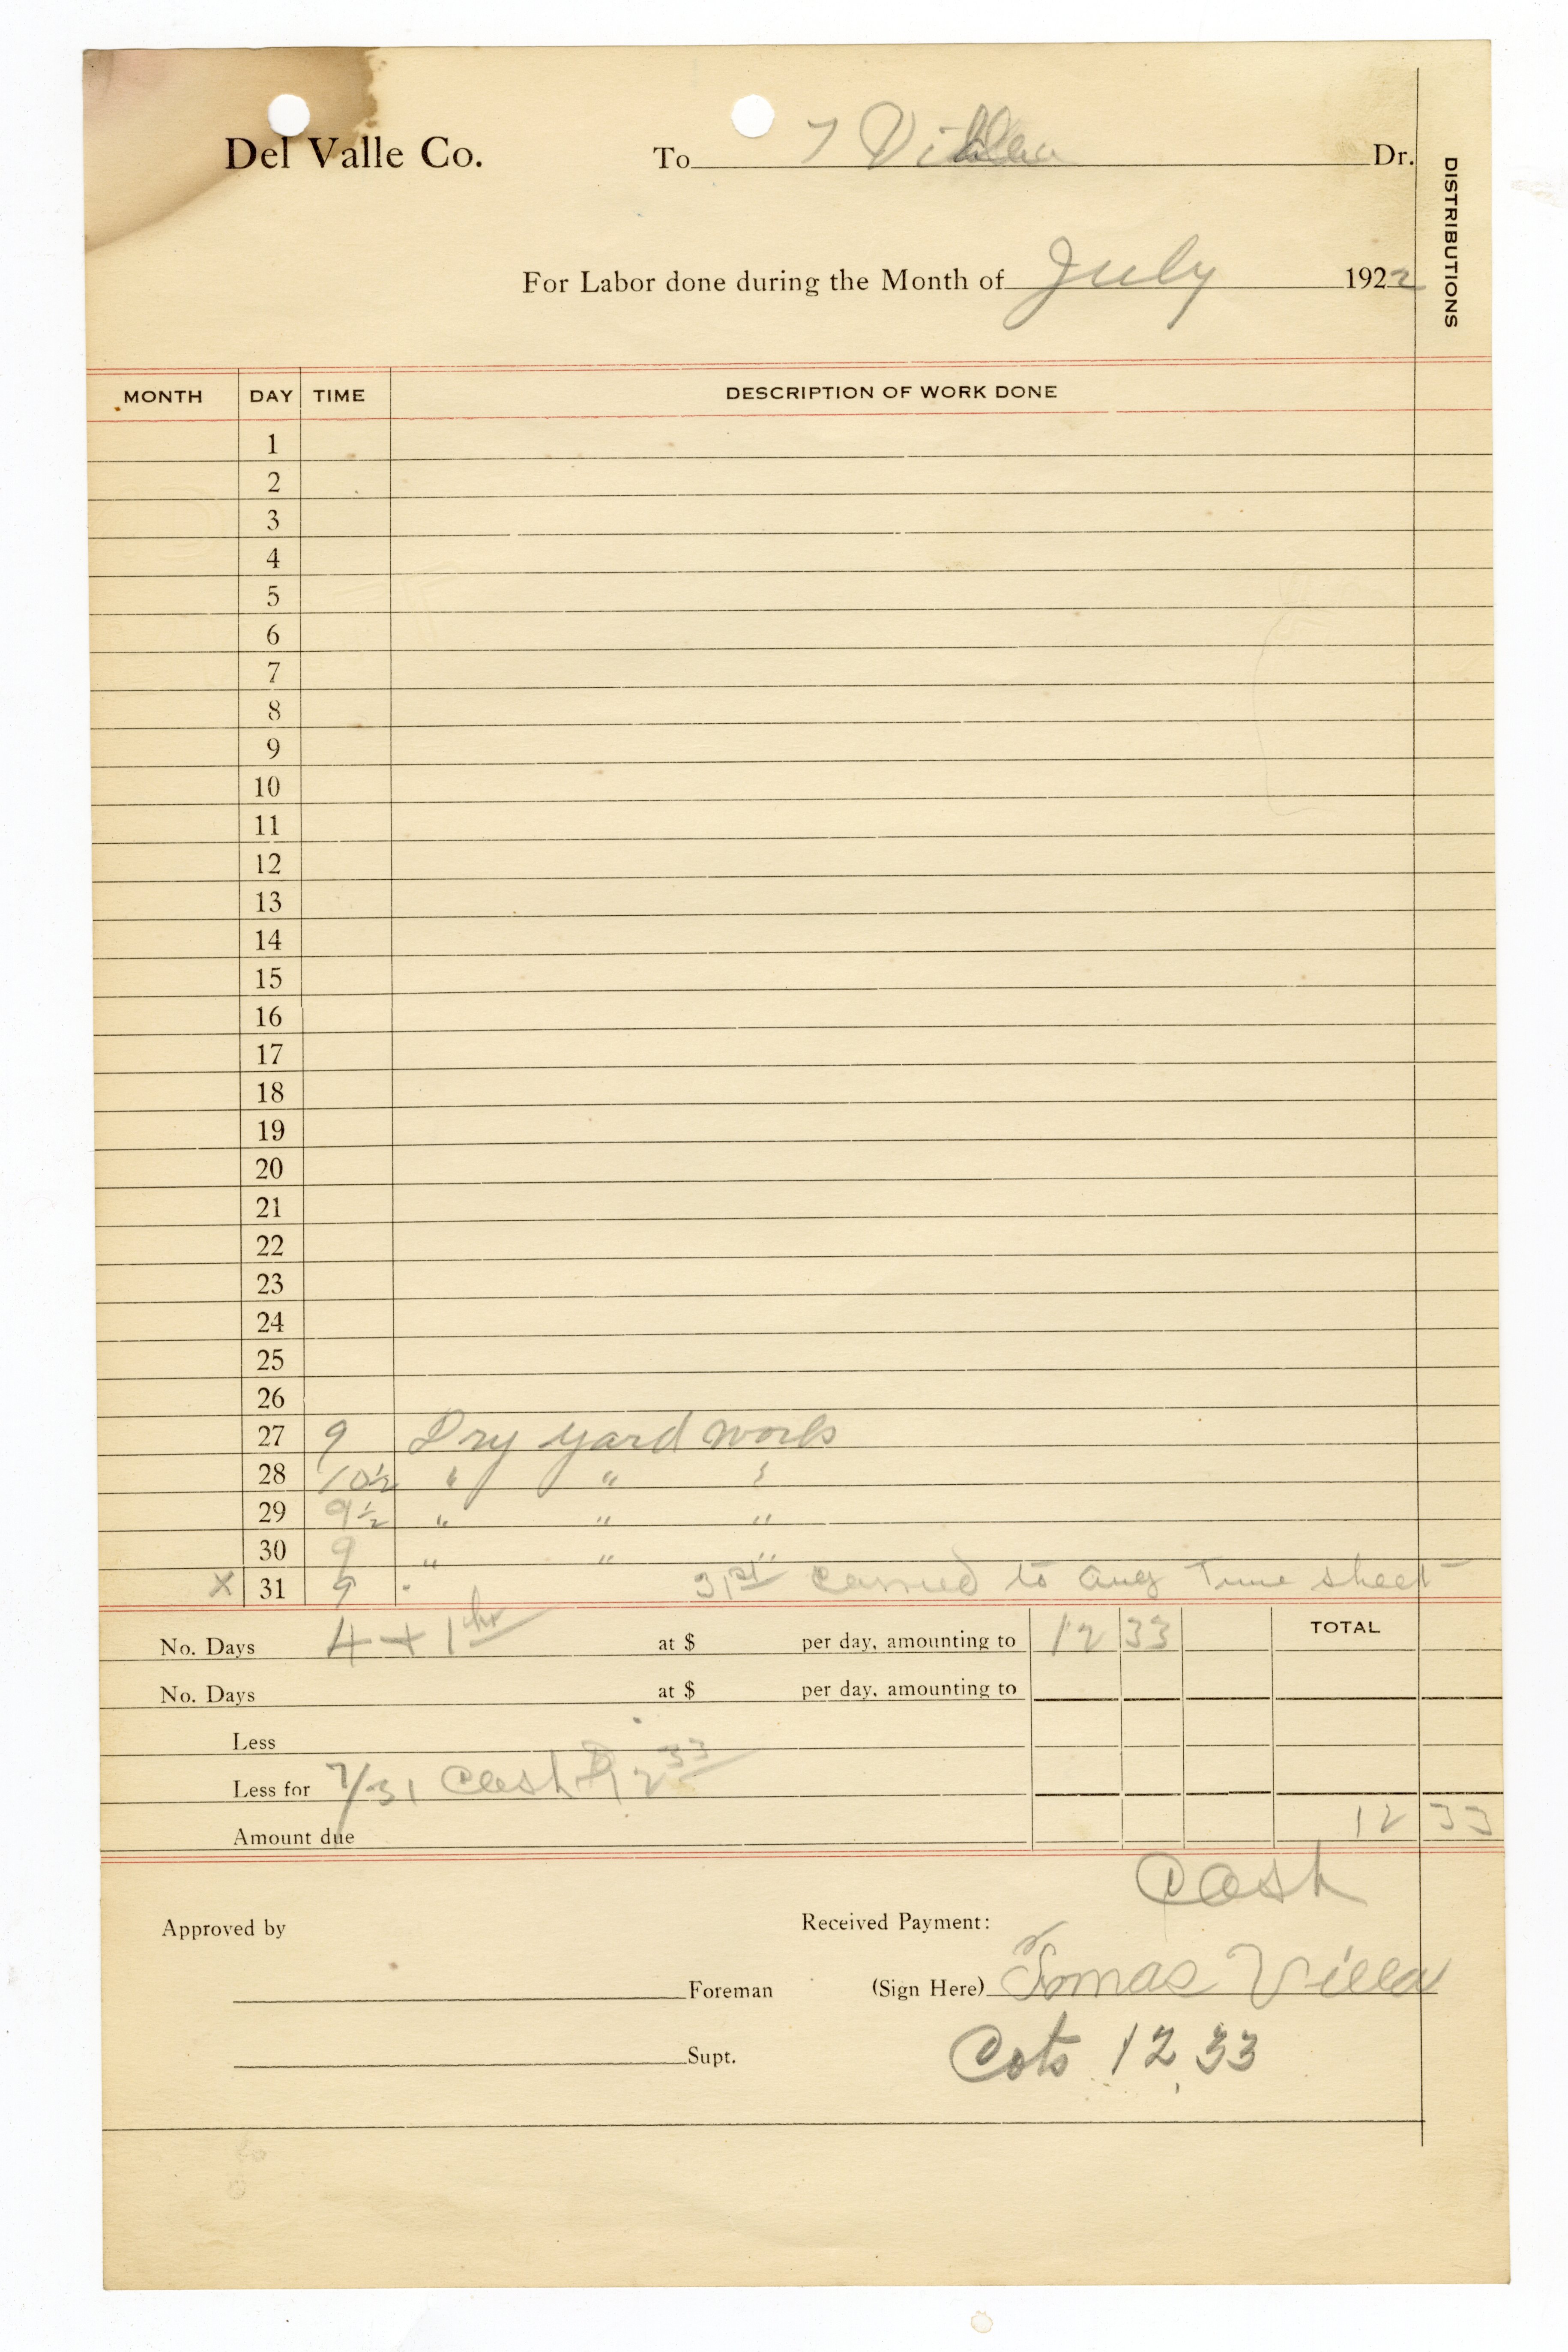 Del Valle Co. To T Villa Dr.
DISTRIBUTIONS
For Labor done during the Month of July 1922
MONTH DAY TIME DESCRIPTION OF WORK DONE
1
2
3
4
5
6
7
8
9
10
11
12
13
14
15
16
17
18
19
20
21
22
23
24
25
26
27 9 Dry yard work
28 10½ " " "
29 9½ " " "
30 9 " " "
X 31 9 31st carried to Aug Time sheet
No. Days 4 + 1 hr at $ per day, amounting to 12 33 TOTAL
No. Days at $ per day, amounting to
Less
Less for 7/31 Cash $12 33
Amount due 12 33
Cash
Approved by Received Payment:
Foreman (Sign Here) Tomas Villa
Supt. 12 33